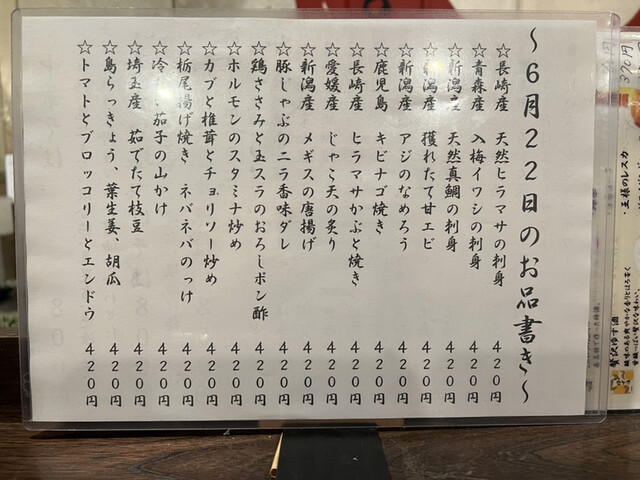 ～６月２２日のお品書き～
☆長崎産 天然ヒラマサの刺身 ４２０円
☆青森産 入梅イワシの刺身 ４２０円
☆新潟産 天然真鯛の刺身 ４２０円
☆新潟産 獲れたて甘エビ ４２０円
☆新潟産 アジのなめろう ４２０円
☆鹿児島 キビナゴ焼き ４２０円
☆長崎産 ヒラマサかぶと焼き ４２０円
☆愛媛産 じゃこ天の炙り ４２０円
☆新潟産 メギスの唐揚げ ４２０円
☆豚しゃぶのニラ香味ダレ ４２０円
☆鶏ささみと玉スラのおろしポン酢 ４２０円
☆ホルモンのスタミナ炒め ４２０円
☆カブと椎茸とチョリソー炒め ４２０円
☆栃尾揚げ焼き ネバネバのっけ ４２０円
☆冷 茄子の山かけ ４２０円
☆埼玉産 茹でたて枝豆 ４２０円
☆島らっきょう、葉生姜、胡瓜 ４２０円
☆トマトとブロッコリーとエンドウ ４２０円
・王様のレスカ
贅沢ゆず酒